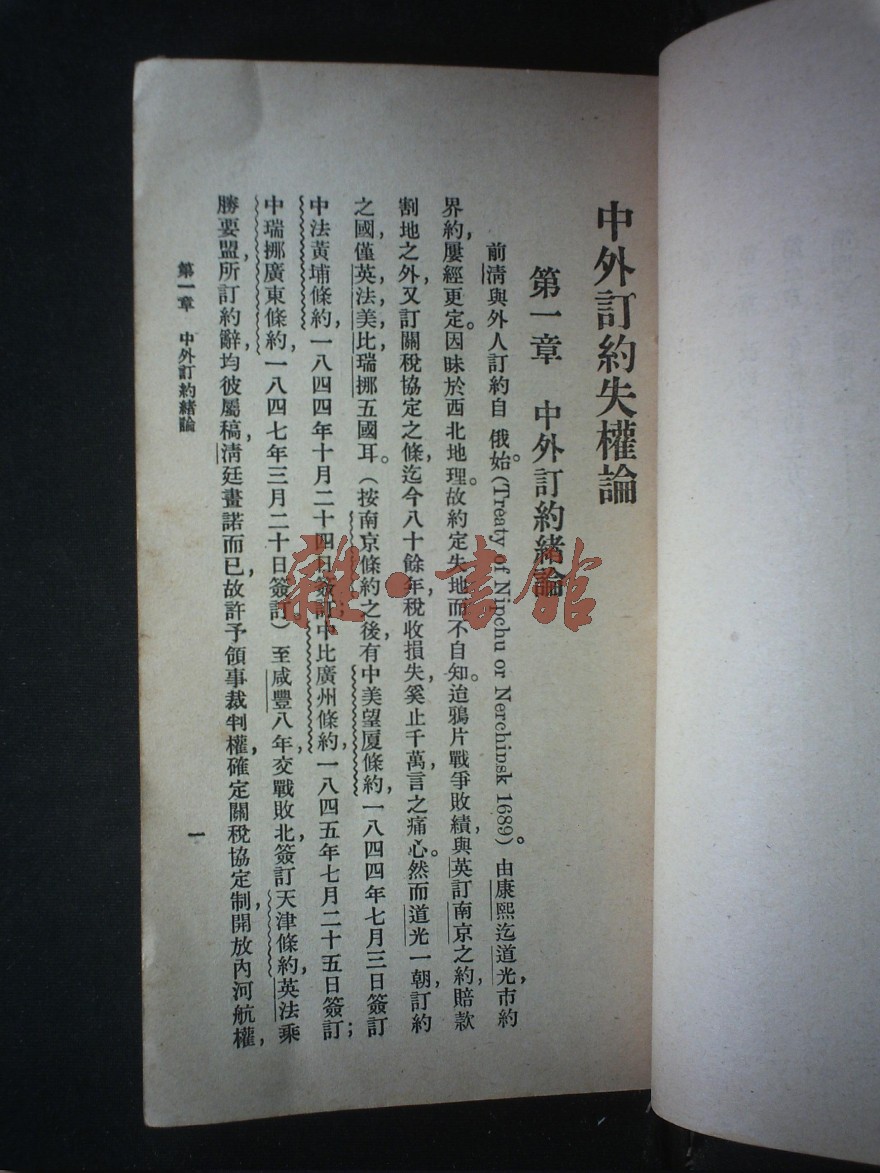 中外訂約失權論
第一章　中外訂約緒論
前清與外人訂約自　俄始。(Treaty of Nipchu or Nerchinsk 1689)。由康熙迄道光，市約
界約，屢經更定。因昧於西北地理。故約定失地而不自知。迨鴉片戰爭敗績，與英訂南京之約，賠款
割地之外，又訂關稅協定之條，迄今八十餘年，稅收損失，奚止千萬言之痛心。然而道光一朝，訂約
之國，僅英，法，美，比，瑞挪五國耳。(按南京條約之後，有中美望厦條約，一八四四年七月三日簽訂
中法黃埔條約，一八四四年十月二十四日簽訂；中比廣州條約，一八四五年七月二十五日簽訂；
中瑞挪廣東條約，一八四七年三月二十日簽訂。)　至咸豐八年，交戰敗北，簽訂天津條約，英法乘
勝要盟，所訂約辭，均彼屬稿，清廷畫諾而已，故許予領事裁判權，確定關稅協定制，開放內河航權，
第一章　中外訂約緒論
一
雜·書館